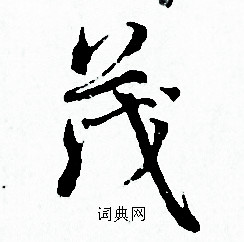 茂
词典网